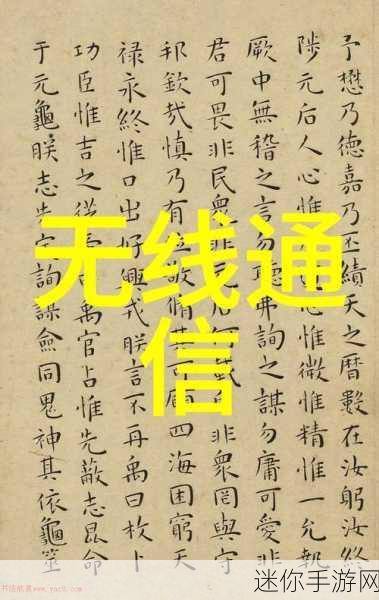 予懋乃德嘉乃丕績天之曆數在汝躬汝終
陟元后人心惟危道心惟微惟精惟一允執
厥中無稽之言勿聽弗詢之謀勿庸可愛非
君可畏非民衆非元后何戴后非衆罔與守
邦欽哉慎乃有位敬脩其可願四海困窮天
祿永終惟口出好興戎朕言不再禹曰枚卜
功臣惟吉之從帝曰禹官占惟先蔽志昆命
于元龜朕志先定詢謀僉同鬼神其依龜筮
无线通
信
书法欣赏 www.yac8.com
迷你手游网